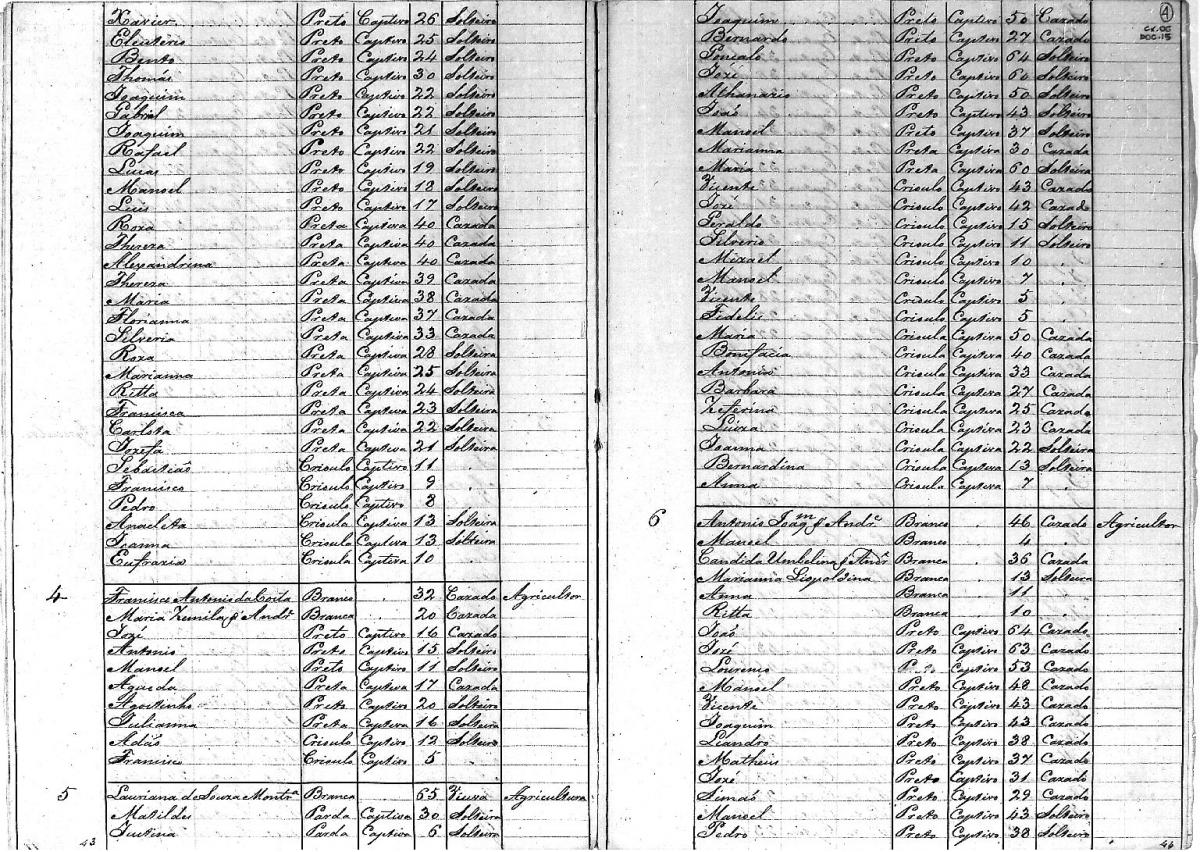 Xavier Preto Captivo 26 Solteiro
Eleuterio Preto Captivo 25 Solteiro
Bento Preto Captivo 24 Solteiro
Thomás Preto Captivo 30 Solteiro
Joaquim Preto Captivo 22 Solteiro
Gabriel Preto Captivo 22 Solteiro
Joaquim Preto Captivo 21 Solteiro
Rafael Preto Captivo 22 Solteiro
Lucas Preto Captivo 19 Solteiro
Manoel Preto Captivo 18 Solteiro
Luis Preto Captivo 17 Solteiro
Roza Preta Captiva 40 Cazada
Thereza Preta Captiva 40 Cazada
Alexandrina Preta Captiva 40 Cazada
Thereza Preta Captiva 39 Cazada
Maria Preta Captiva 38 Cazada
Florianna Preta Captiva 37 Cazada
Silveria Preta Captiva 33 Cazada
Roza Preta Captiva 28 Solteira
Marianna Preta Captiva 25 Solteira
Ritta Preta Captiva 24 Solteira
Francisca Preta Captiva 23 Solteira
Carlota Preta Captiva 22 Solteira
Jozefa Preta Captiva 21 Solteira
Sebastiaõ Crioulo Captivo 11 .
Francisco Crioulo Captivo 9 .
Pedro Crioulo Captivo 8
Anacleta Crioula Captiva 13 Solteira
Joanna Crioula Captiva 13 Solteira
Eufrazia Crioula Captiva 10 .
4 Francisco Antonio da Costa Branco . 32 Cazado Agricultor
Maria Zemila d' Andr.e Branca 20 Cazada
Jozé Preto Captivo 16 Cazado
Antonio Preto Captivo 15 Solteiro
Manoel Preto Captivo 11 Solteiro
Agueda Preta Captiva 17 Cazada
Agostinho Preto Captivo 20 Solteiro
Julianna Preta Captiva 16 Solteira
Adaõ Crioulo Captivo 12 Solteiro
Francisco Crioulo Captivo 5 .
5 Lauriana de Souza Montr.a Branca 65 Viuva Agricultura
Matildes Parda Captiva 30 Solteira
Justina Parda Captiva 6 Solteira
43
4
CX.06
DOC-15
Joaquim Preto Captivo 50 Cazado
Bernardo Preto Captivo 27 Cazado
Gonçalo Preto Captivo 64 Solteiro
Jozé Preto Captivo 60 Solteiro
Athanazio Preto Captivo 50 Solteiro
Joaõ Preto Captivo 43 Solteiro
Manoel Preto Captivo 37 Solteiro
Marianna Preta Captiva 30 Cazada
Maria Preta Captiva 60 Solteira
Vicente Crioulo Captivo 43 Cazado
Jozé Crioulo Captivo 42 Cazado
Geraldo Crioulo Captivo 15 Solteiro
Silverio Crioulo Captivo 11 Solteiro
Mizael Crioulo Captivo 10 .
Manoel Crioulo Captivo 7 .
Vicente Crioulo Captivo 5
Fidelis Crioulo Captivo 5 .
Maria Crioula Captiva 50 Cazada
Bonifacia Crioula Captiva 40 Cazada
Antonia Crioula Captiva 33 Cazada
Barbara Crioula Captiva 27 Cazada
Zeferina Crioula Captiva 25 Cazada
Luiza Crioula Captiva 23 Cazada
Joanna Crioula Captiva 22 Solteira
Bernardina Crioula Captiva 13 Solteira
Anna Crioula Captiva 7 .
6 Antonio Joaq.m d' Andr.e Branco . 46 Cazado Agricultor
Manoel Branco . 4
Candida Umbelina d' Andr.e Branca . 36 Cazada
Marianna Liopoldina Branca . 13 Solteira
Anna Branca . 11
Ritta Branca . 10
Joaõ Preto Captivo 64 Cazado
Jozé Preto Captivo 63 Cazado
Lourenço Preto Captivo 53 Cazado
Manoel Preto Captivo 48 Cazado
Vicente Preto Captivo 43 Cazado
Joaquim Preto Captivo 43 Cazado
Leandro Preto Captivo 38 Cazado
Matheus Preto Captivo 37 Cazado
Jozé Preto Captivo 31 Cazado
Simaõ Preto Captivo 29 Cazado
Manoel Preto Captivo 43 Solteiro
Pedro Preto Captivo 38 Solteiro